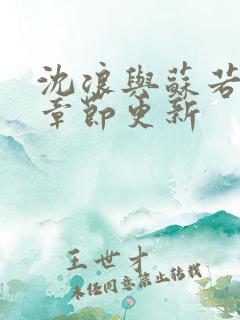 沈浪與蘇若
章節更新
王世才
未经同意禁止转载